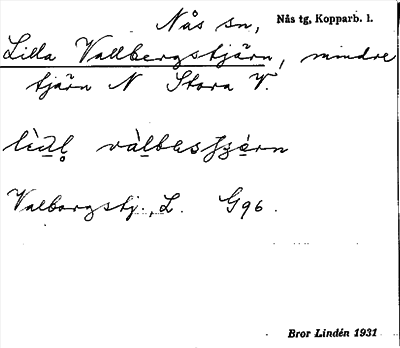 Nås sn, Nås tg, Kopparb. l.
Lilla Vallbergstjärn, mindre
tjärn N Stora V.
Valborgstj., L. G96.
Bror Lindén 1931